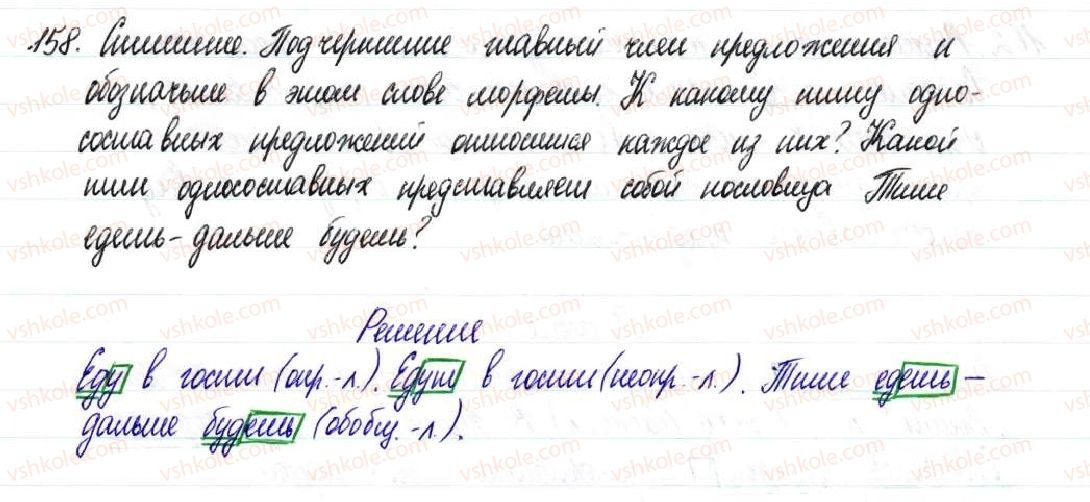 158. Спишите. Подчеркните главный член предложения и
обозначьте в этом слове морфемы. К какому типу одно-
составных предложений относится каждое из них? Какой
тип односоставных представляет собой пословица Тише
едешь – дальше будешь?
Решение
Еду в гости (опр.-л.). Едут в гости (неопр.-л.). Тише едешь –
дальше будешь (обобщ.-л.).